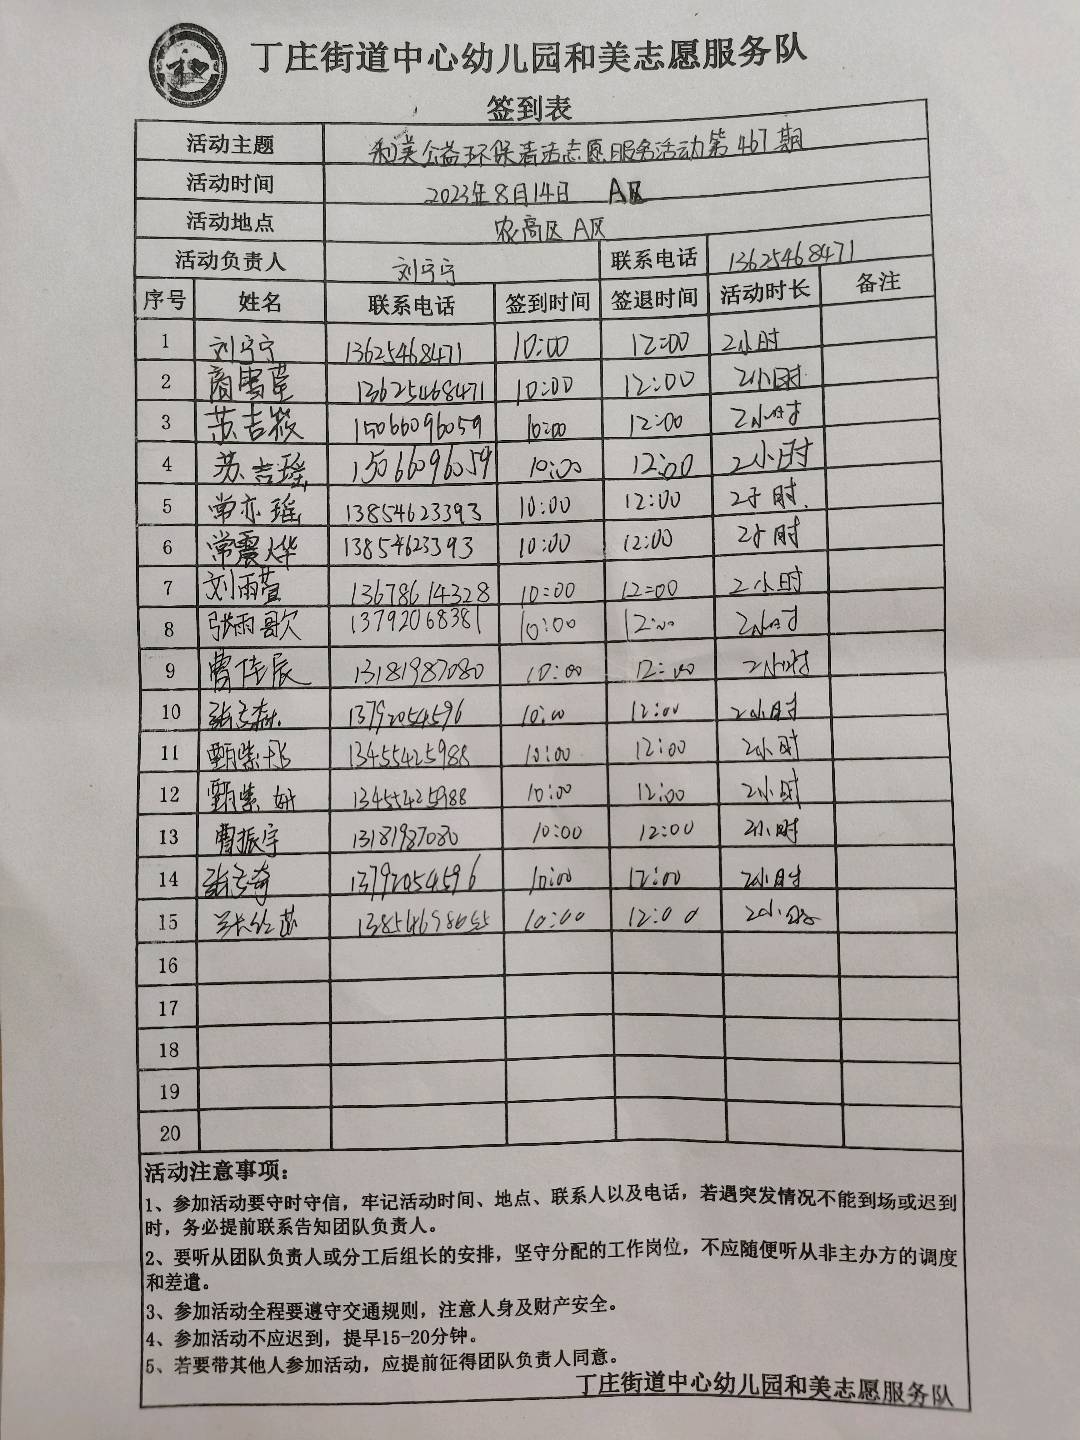 丁庄街道中心幼儿园和美志愿服务队
签到表
活动主题 和美公益环保清洁志愿服务活动第467期
活动时间 2023年8月14日 A区
活动地点 农高区 A区
活动负责人 刘宁宁 联系电话 13625468471
序号 姓名 联系电话 签到时间 签退时间 活动时长 备注
1 刘宁宁 13625468471 10:00 12:00 2小时
2 商雪莹 13625468471 10:00 12:00 2小时
3 苏吉筱 15066096059 10:00 12:00 2小时
4 苏吉瑶 15066096059 10:00 12:00 2小时
5 常亦瑶 13854623393 10:00 12:00 2小时
6 常震烨 13854623393 10:00 12:00 2小时
7 刘雨萱 13678614328 10:00 12:00 2小时
8 张雨歌 13792068381 10:00 12:00 2小时
9 曹佳辰 13181987080 10:00 12:00 2小时
10 13792054596 10:00 12:00 2小时
11 甄紫彤 13455425988 10:00 12:00 2小时
12 甄紫妍 13455425988 10:00 12:00 2小时
13 曹振宇 13181987080 10:00 12:00 2小时
14 13792054596 10:00 12:00 2小时
15 10:00 12:00 2小时
16
17
18
19
20
活动注意事项：
1、参加活动要守时守信，牢记活动时间、地点、联系人以及电话，若遇突发情况不能到场或迟到
时，务必提前联系告知团队负责人。
2、要听从团队负责人或分工后组长的安排，坚守分配的工作岗位，不应随便听从非主办方的调度
和差遣。
3、参加活动全程要遵守交通规则，注意人身及财产安全。
4、参加活动不应迟到，提早15-20分钟。
5、若要带其他人参加活动，应提前征得团队负责人同意。
丁庄街道中心幼儿园和美志愿服务队